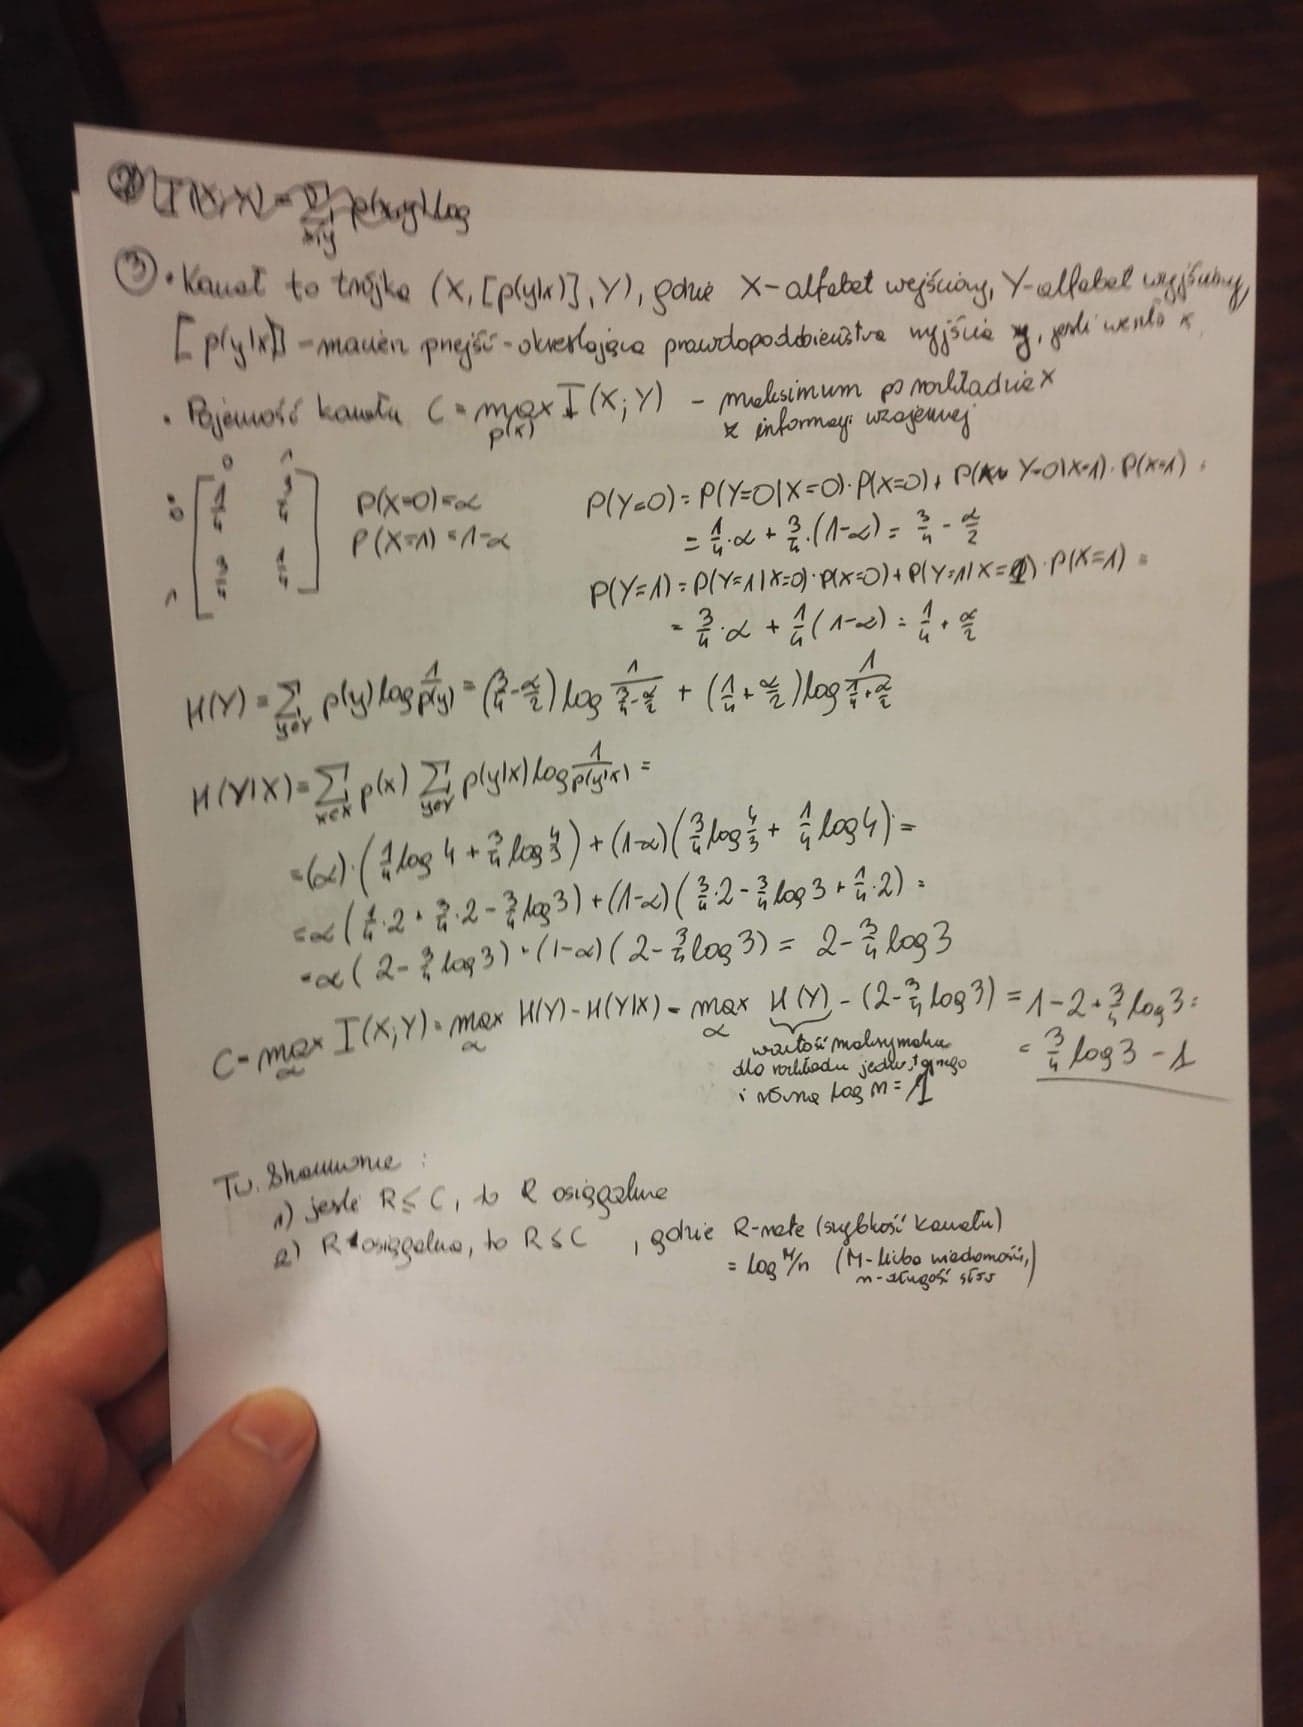 ② I(X;Y) = Σ x,y p(x,y) log
③ • Kanał to trójka (X, [p(y|x)], Y), gdzie X-alfabet wejściowy, Y-alfabet wyjściowy,
[p(y|x)] - macierz przejść - określająca prawdopodobieństwa wyjścia y, jeśli weszło x
• Pojemność kanału C = max p(x) I(X;Y) - maksimum po rozkładzie X
z informacji wzajemnej
0 1
0 [ 1/4 3/4 ] P(X=0)=α
1 [ 3/4 1/4 ] P(X=1)=1-α
P(Y=0) = P(Y=0|X=0)·P(X=0) + P(Y=0|X=1)·P(X=1) =
= 1/4·α + 3/4·(1-α) = 3/4 - α/2
P(Y=1) = P(Y=1|X=0)·P(X=0) + P(Y=1|X=1)·P(X=1) =
= 3/4·α + 1/4(1-α) = 1/4 + α/2
H(Y) = Σ y∈Y p(y) log 1/p(y) = (3/4 - α/2) log 1/(3/4 - α/2) + (1/4 + α/2) log 1/(1/4 + α/2)
H(Y|X) = Σ x∈X p(x) Σ y∈Y p(y|x) log 1/p(y|x) =
= (α)·(1/4 log 4 + 3/4 log 4/3) + (1-α)(3/4 log 4/3 + 1/4 log 4) =
= α(1/4·2 + 3/4·2 - 3/4 log 3) + (1-α)(3/4·2 - 3/4 log 3 + 1/4·2) =
= α(2 - 3/4 log 3) + (1-α)(2 - 3/4 log 3) = 2 - 3/4 log 3
C = max α I(X;Y) = max α H(Y) - H(Y|X) = max α H(Y) - (2 - 3/4 log 3) = 1 - 2 + 3/4 log 3 =
= 3/4 log 3 - 1
wartość maksymalna
dla rozkładu jednostajnego
i równa log n = 1
Tw. Shannona :
1) jeśli R ≤ C, to R osiągalne
2) R osiągalne, to R ≤ C , gdzie R-rate (szybkość kanału)
= log M/n (M-liczba wiadomości,
n-długość słów)